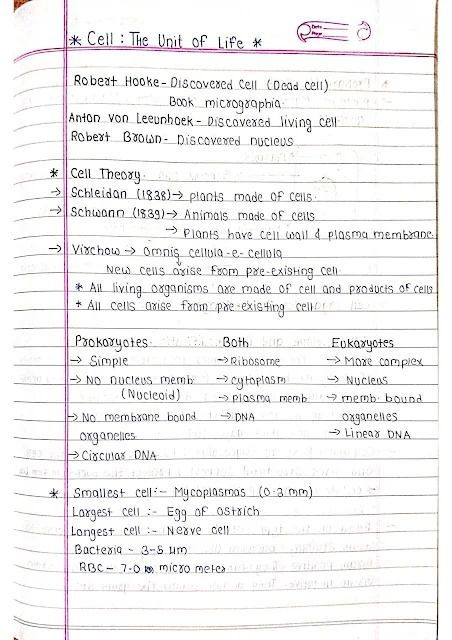 * Cell : The Unit of Life *
Date
Page
Robert Hooke - Discovered Cell (Dead cell)
Book micrographia.
Anton von Leeunhoek - Discovered living cell
Robert Brown - Discovered nucleus
* Cell Theory
→ Schleidan (1838) → plants made of cells
→ Schwann (1839) → Animals made of cells
→ Plants have cell wall & plasma membrane
→ Virchow → Omnis cellula-e-cellula
New cells arise from pre-existing cell
* All living organisms are made of cell and products of cells
* All cells arise from pre-existing cell
Prokaryotes Both Eukaryotes
→ Simple → Ribosome → More complex
→ No nucleus memb → cytoplasm → Nucleus
(Nucleoid) → Plasma memb → memb bound
→ No membrane bound → DNA organelles
organelles → Linear DNA
→ Circular DNA
* Smallest cell :- Mycoplasmas (0.3 mm)
Largest cell :- Egg of Ostrich
Longest cell :- Nerve cell
Bacteria - 3-5 μm
RBC - 7.0 micro meter